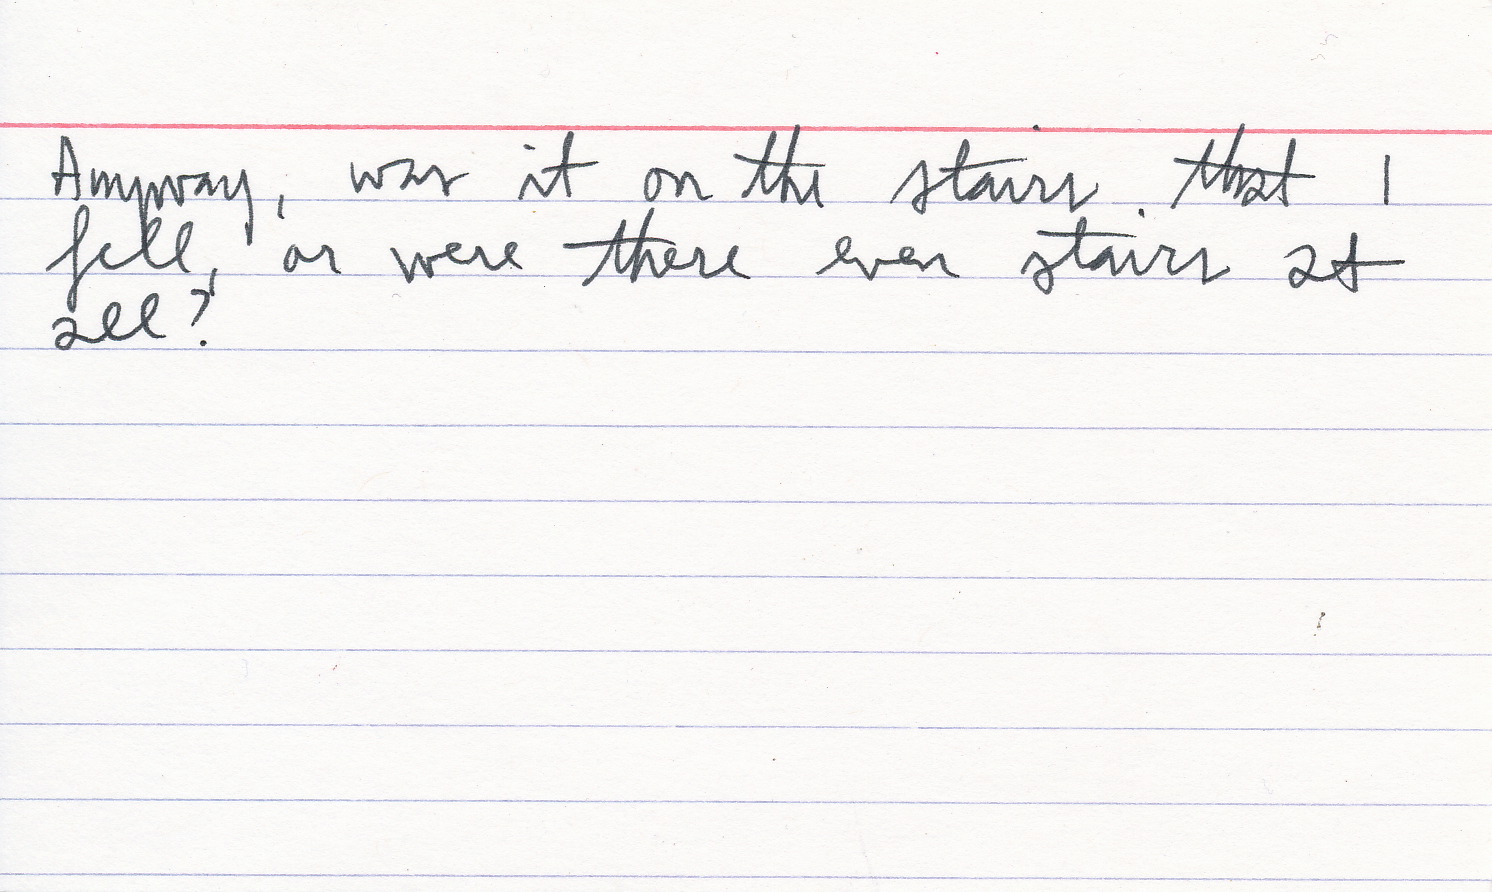 Anyway, was it on the stairs that I
fell, or were there even stairs at
all?